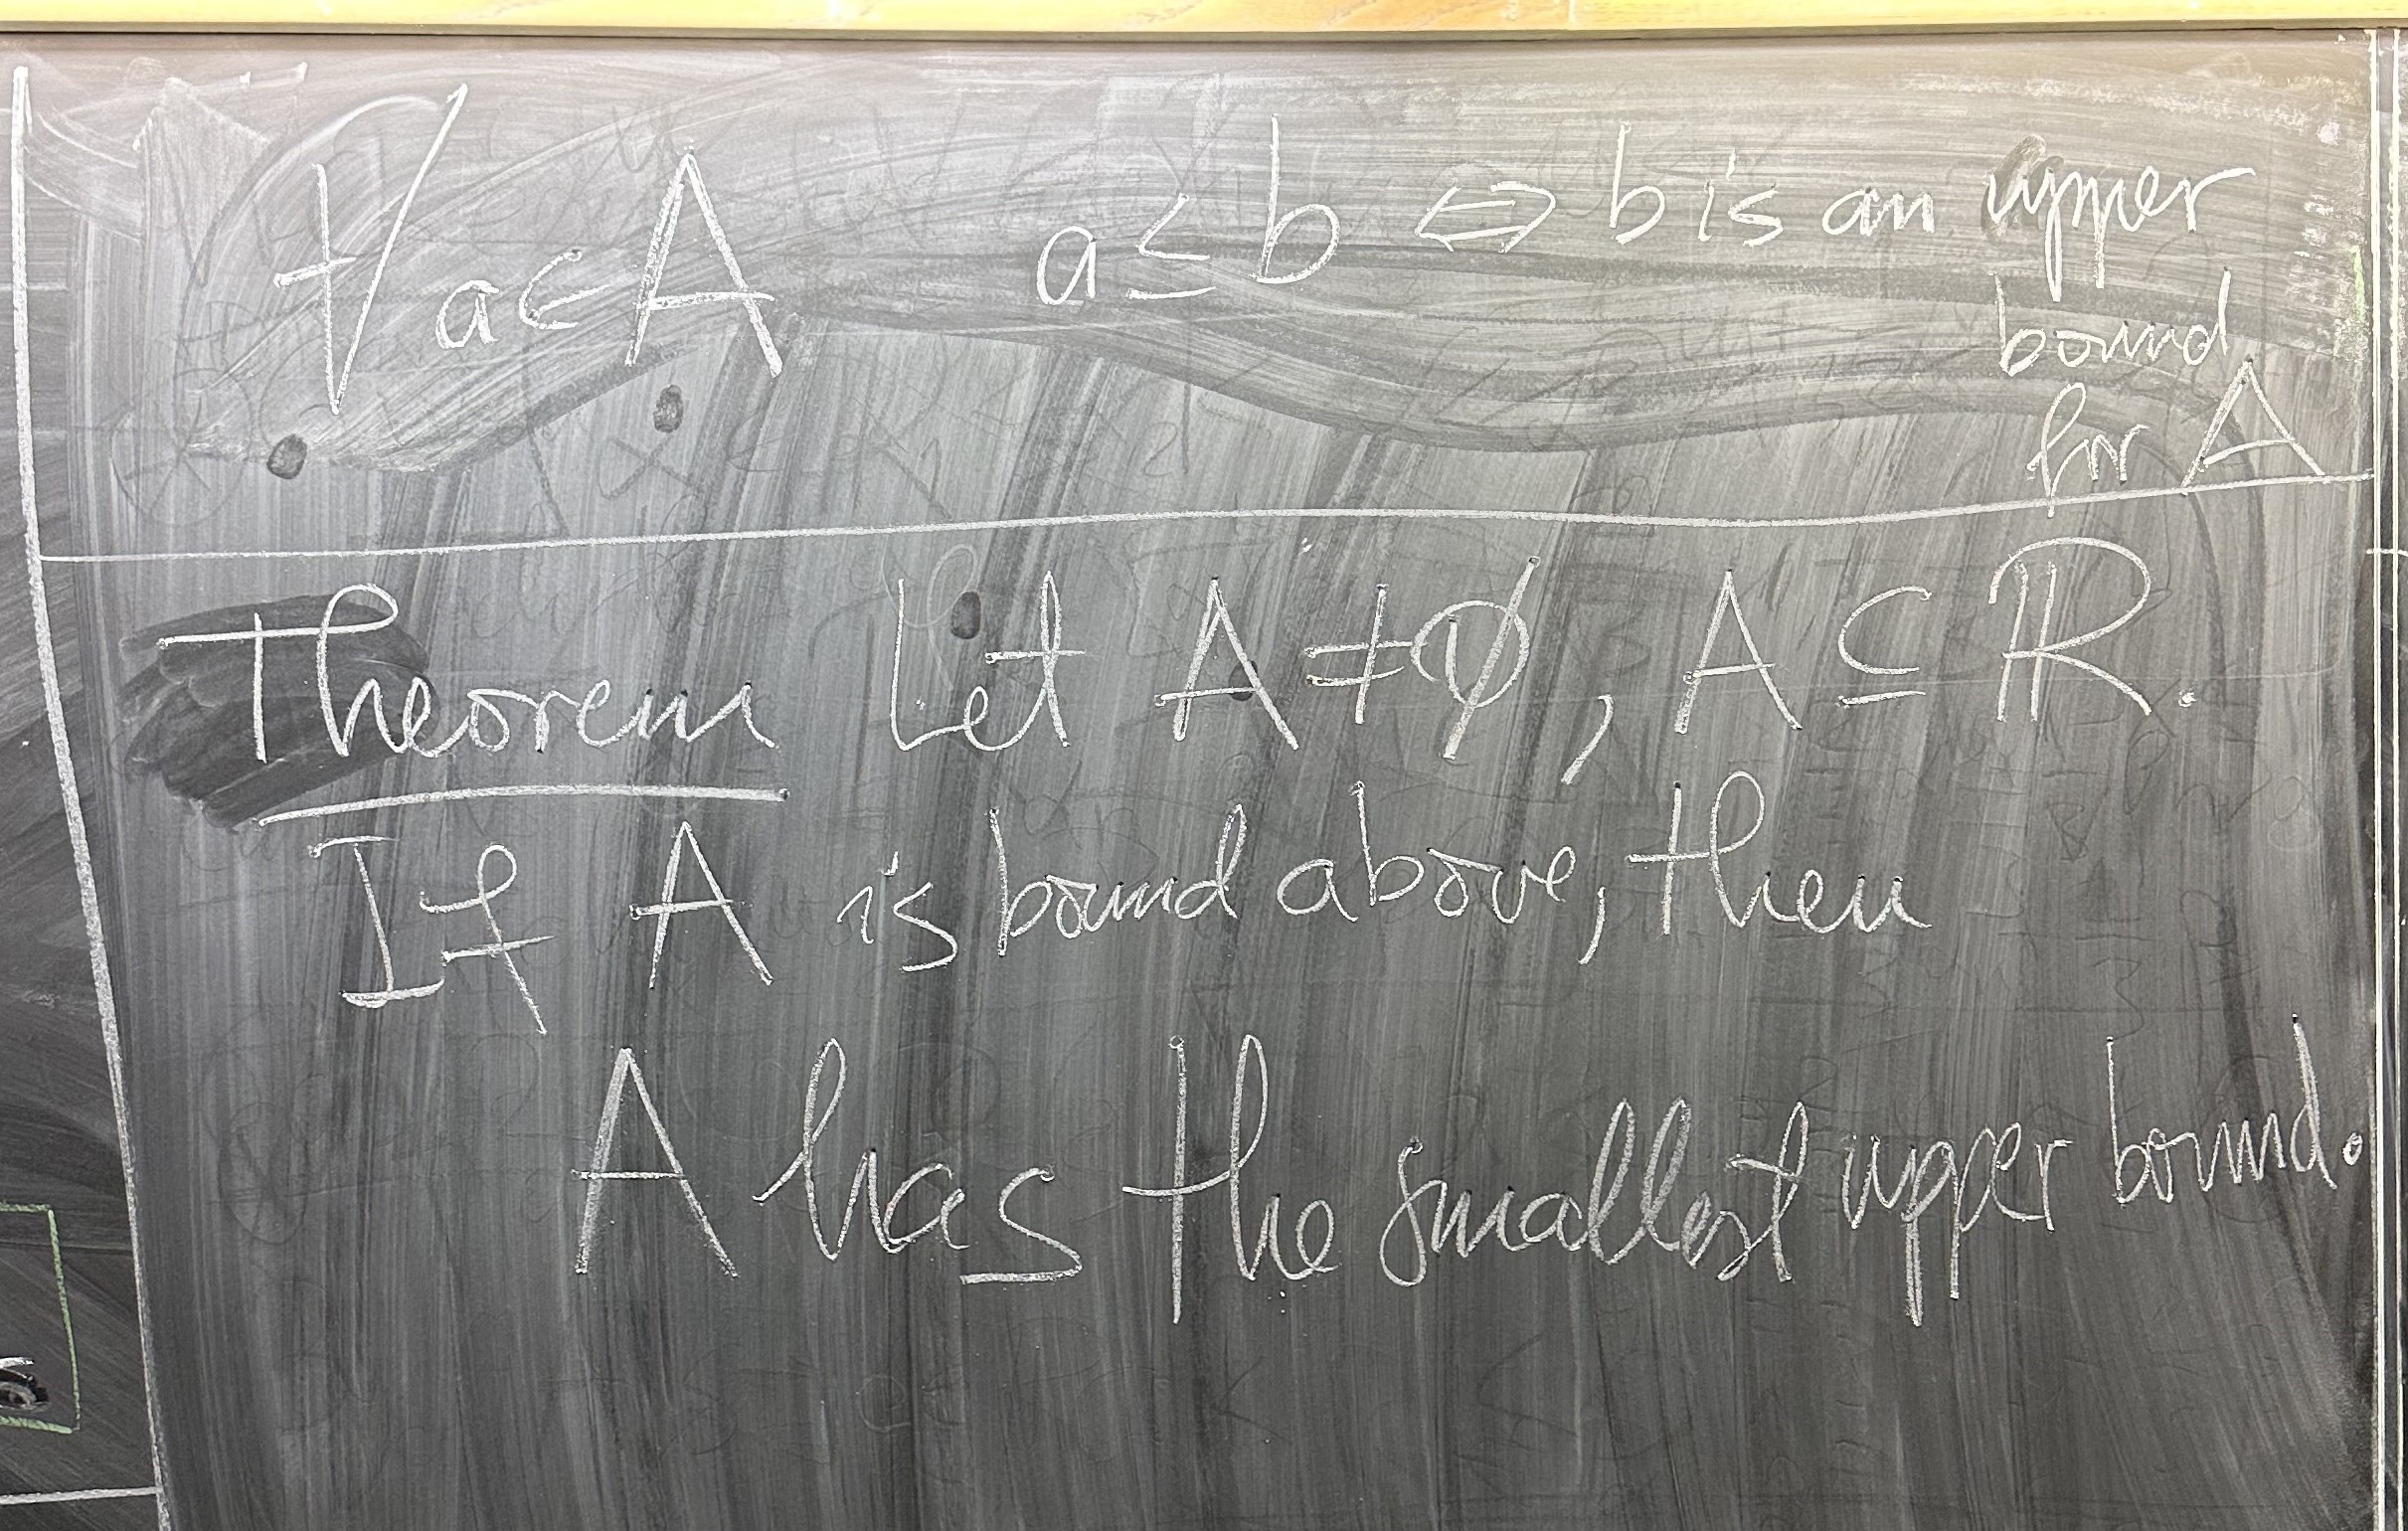 ∀ a ∈ A a ≤ b ⇔ b is an upper
bound
for A
Theorem Let A ≠ ∅, A ⊆ ℝ.
If A is bound above, then
A has the smallest upper bound.